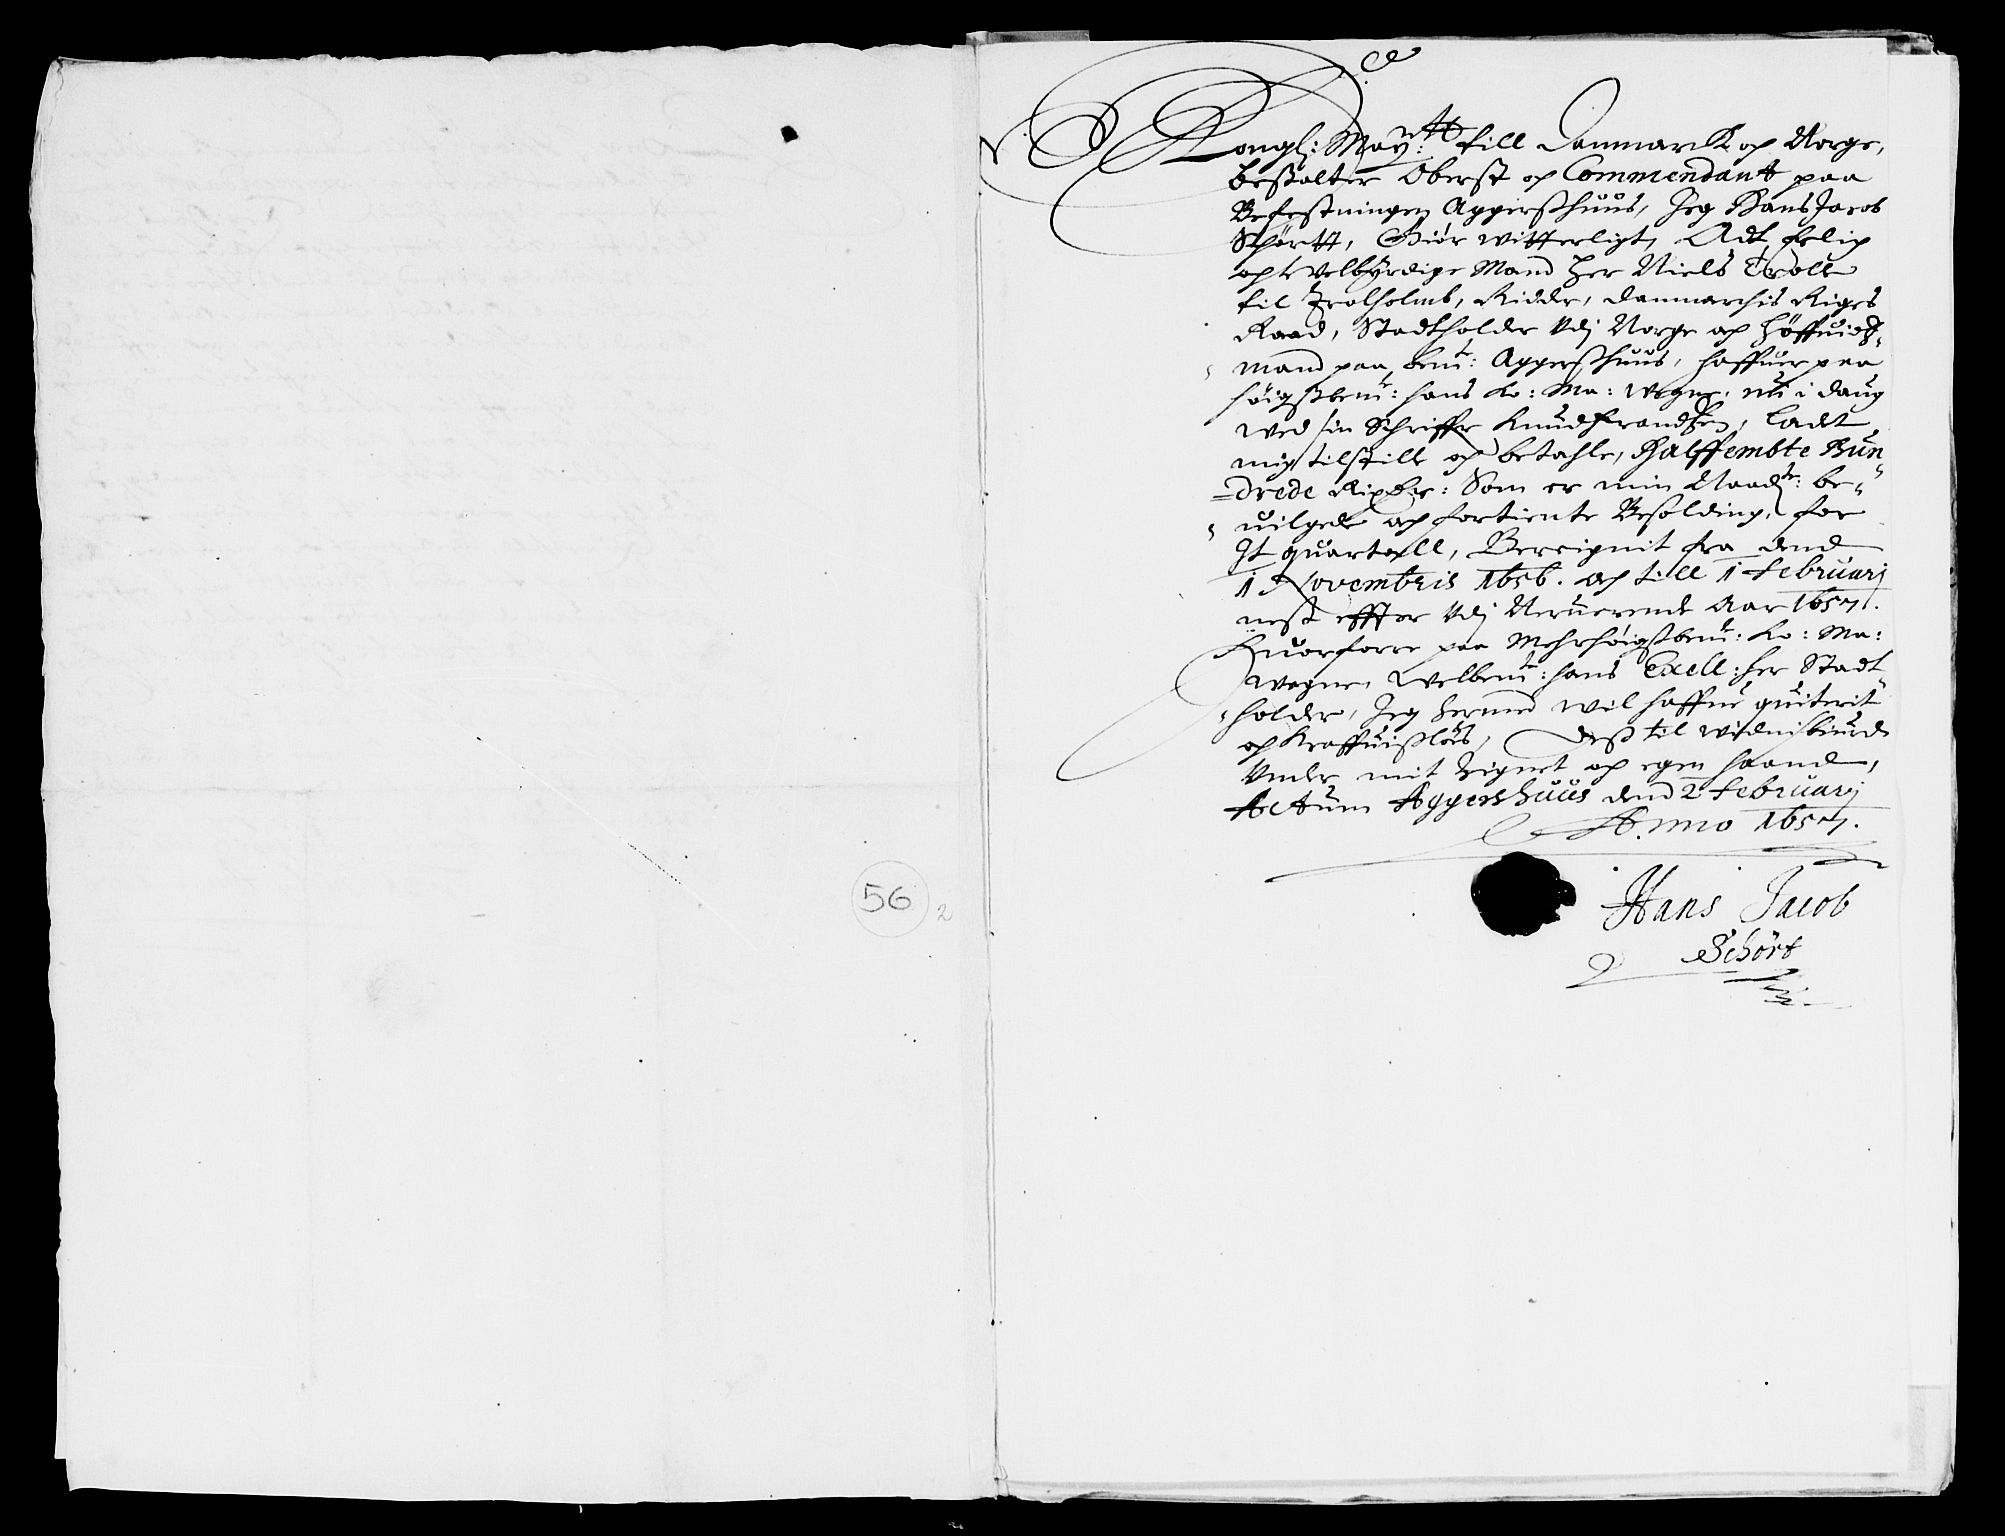 Kongl: May:tt till Danmarck och Norge,
bestalter Oberst och Commendantt paa
Befestningen Aggerßhuus, Jeg Hans Jacob
Schörtt, Giör witterligt, Adt, Erlig
och Velbÿrdige Mand Her Niels Trolle
til Trolholmb, Ridder, Danmarchis Riges
Raad, Stadtholder Vdj Norge och Höffuidtz-
mand paa bente: Aggerßhuus, haffuer paa
höigstbente: hans Ko: Ma: Wegne, nu i daug
wed sin Schriffr Knud Frandtzen, ladt
mig tilstille och betahle, Halffembte Hun
=drede Rixdlr: Som er min Naadste: be-
uilgede och fortiente Besolding, for
It quartall, Bereignit fra dend
1 Novembris 1656. och till 1 Februarj
nest effter Vdj Neruerende Aar 1657.
Huorforre paa Mehrhöigstbente: Ko: Ma:
wegne, Welbente: hans Exell: her Stadt-
holder, Jeg hermed wil haffue quiterit
och Kraffuisløs, Dess til Widnisbiurd
Under mit Signet och egen haand,
Actum Aggershuus dend 2 Februarj
Anno 1657.
Hans Jacob
Schört
56
2